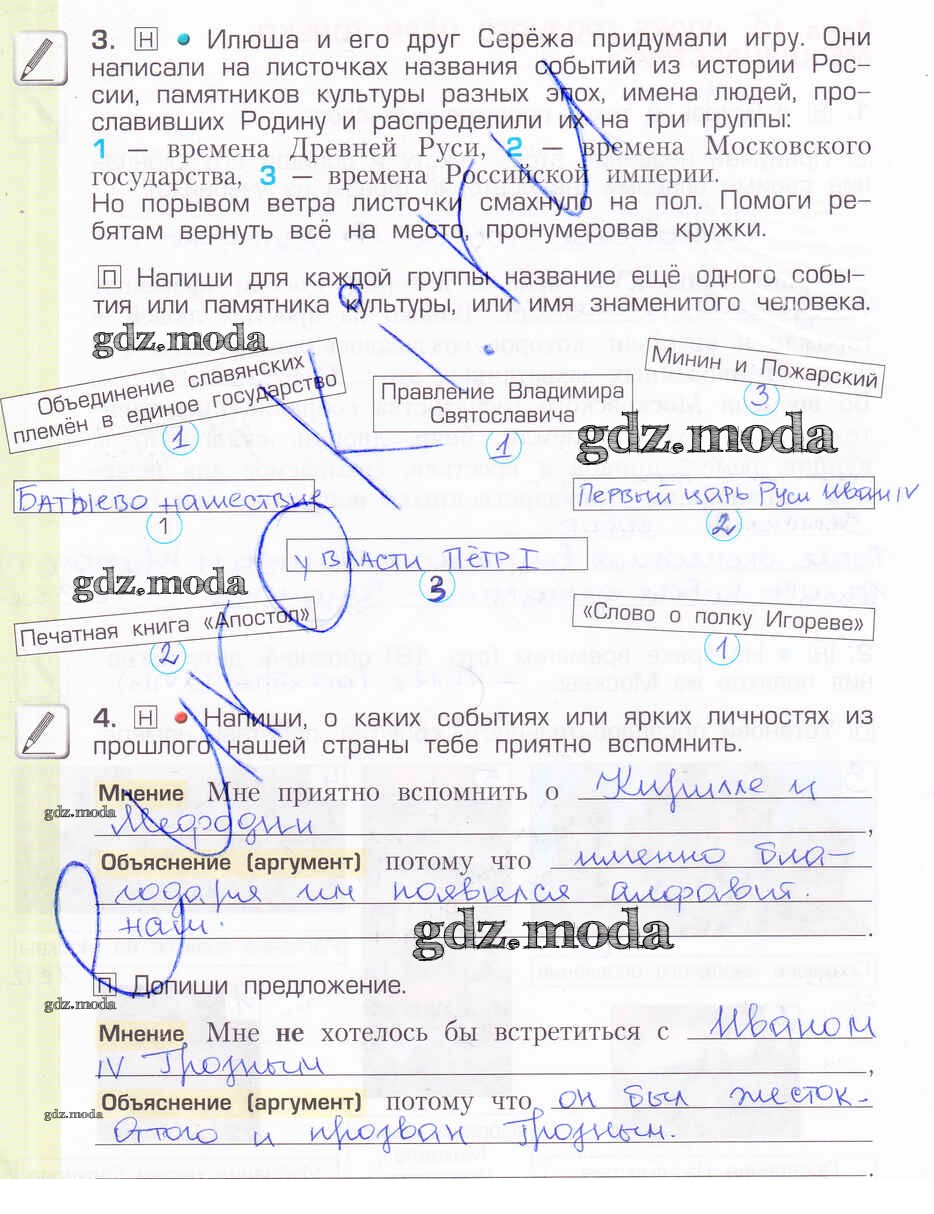 3. Н • Илюша и его друг Серёжа придумали игру. Они
написали на листочках названия событий из истории Рос-
сии, памятников культуры разных эпох, имена людей, про-
славивших Родину и распределили их на три группы:
1 — времена Древней Руси, 2 — времена Московского
государства, 3 — времена Российской империи.
Но порывом ветра листочки смахнуло на пол. Помоги ре-
бятам вернуть всё на место, пронумеровав кружки.
П Напиши для каждой группы название ещё одного собы-
тия или памятника культуры, или имя знаменитого человека.
gdz.moda
Объединение славянских
племён в единое государство
1
Правление Владимира
Святославича
1
Минин и Пожарский
3
gdz.moda
Батыево нашествие
1
Первый царь Руси Иван IV
2
у власти Пётр I
3
gdz.moda
Печатная книга «Апостол»
2
«Слово о полку Игореве»
1
4. Н • Напиши, о каких событиях или ярких личностях из
прошлого нашей страны тебе приятно вспомнить.
Мнение Мне приятно вспомнить о Кирилле и
gdz.moda
Мефодии ,
Объяснение (аргумент) потому что именно бла-
годаря им появился алфавит.
наш. .
gdz.moda
П Допиши предложение.
gdz.moda
Мнение Мне не хотелось бы встретиться с Иваном
IV Грозным ,
Объяснение (аргумент) потому что он был жесток.
gdz.moda
Оттого и прозван Грозным.
.